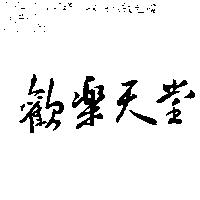 歡樂天堂